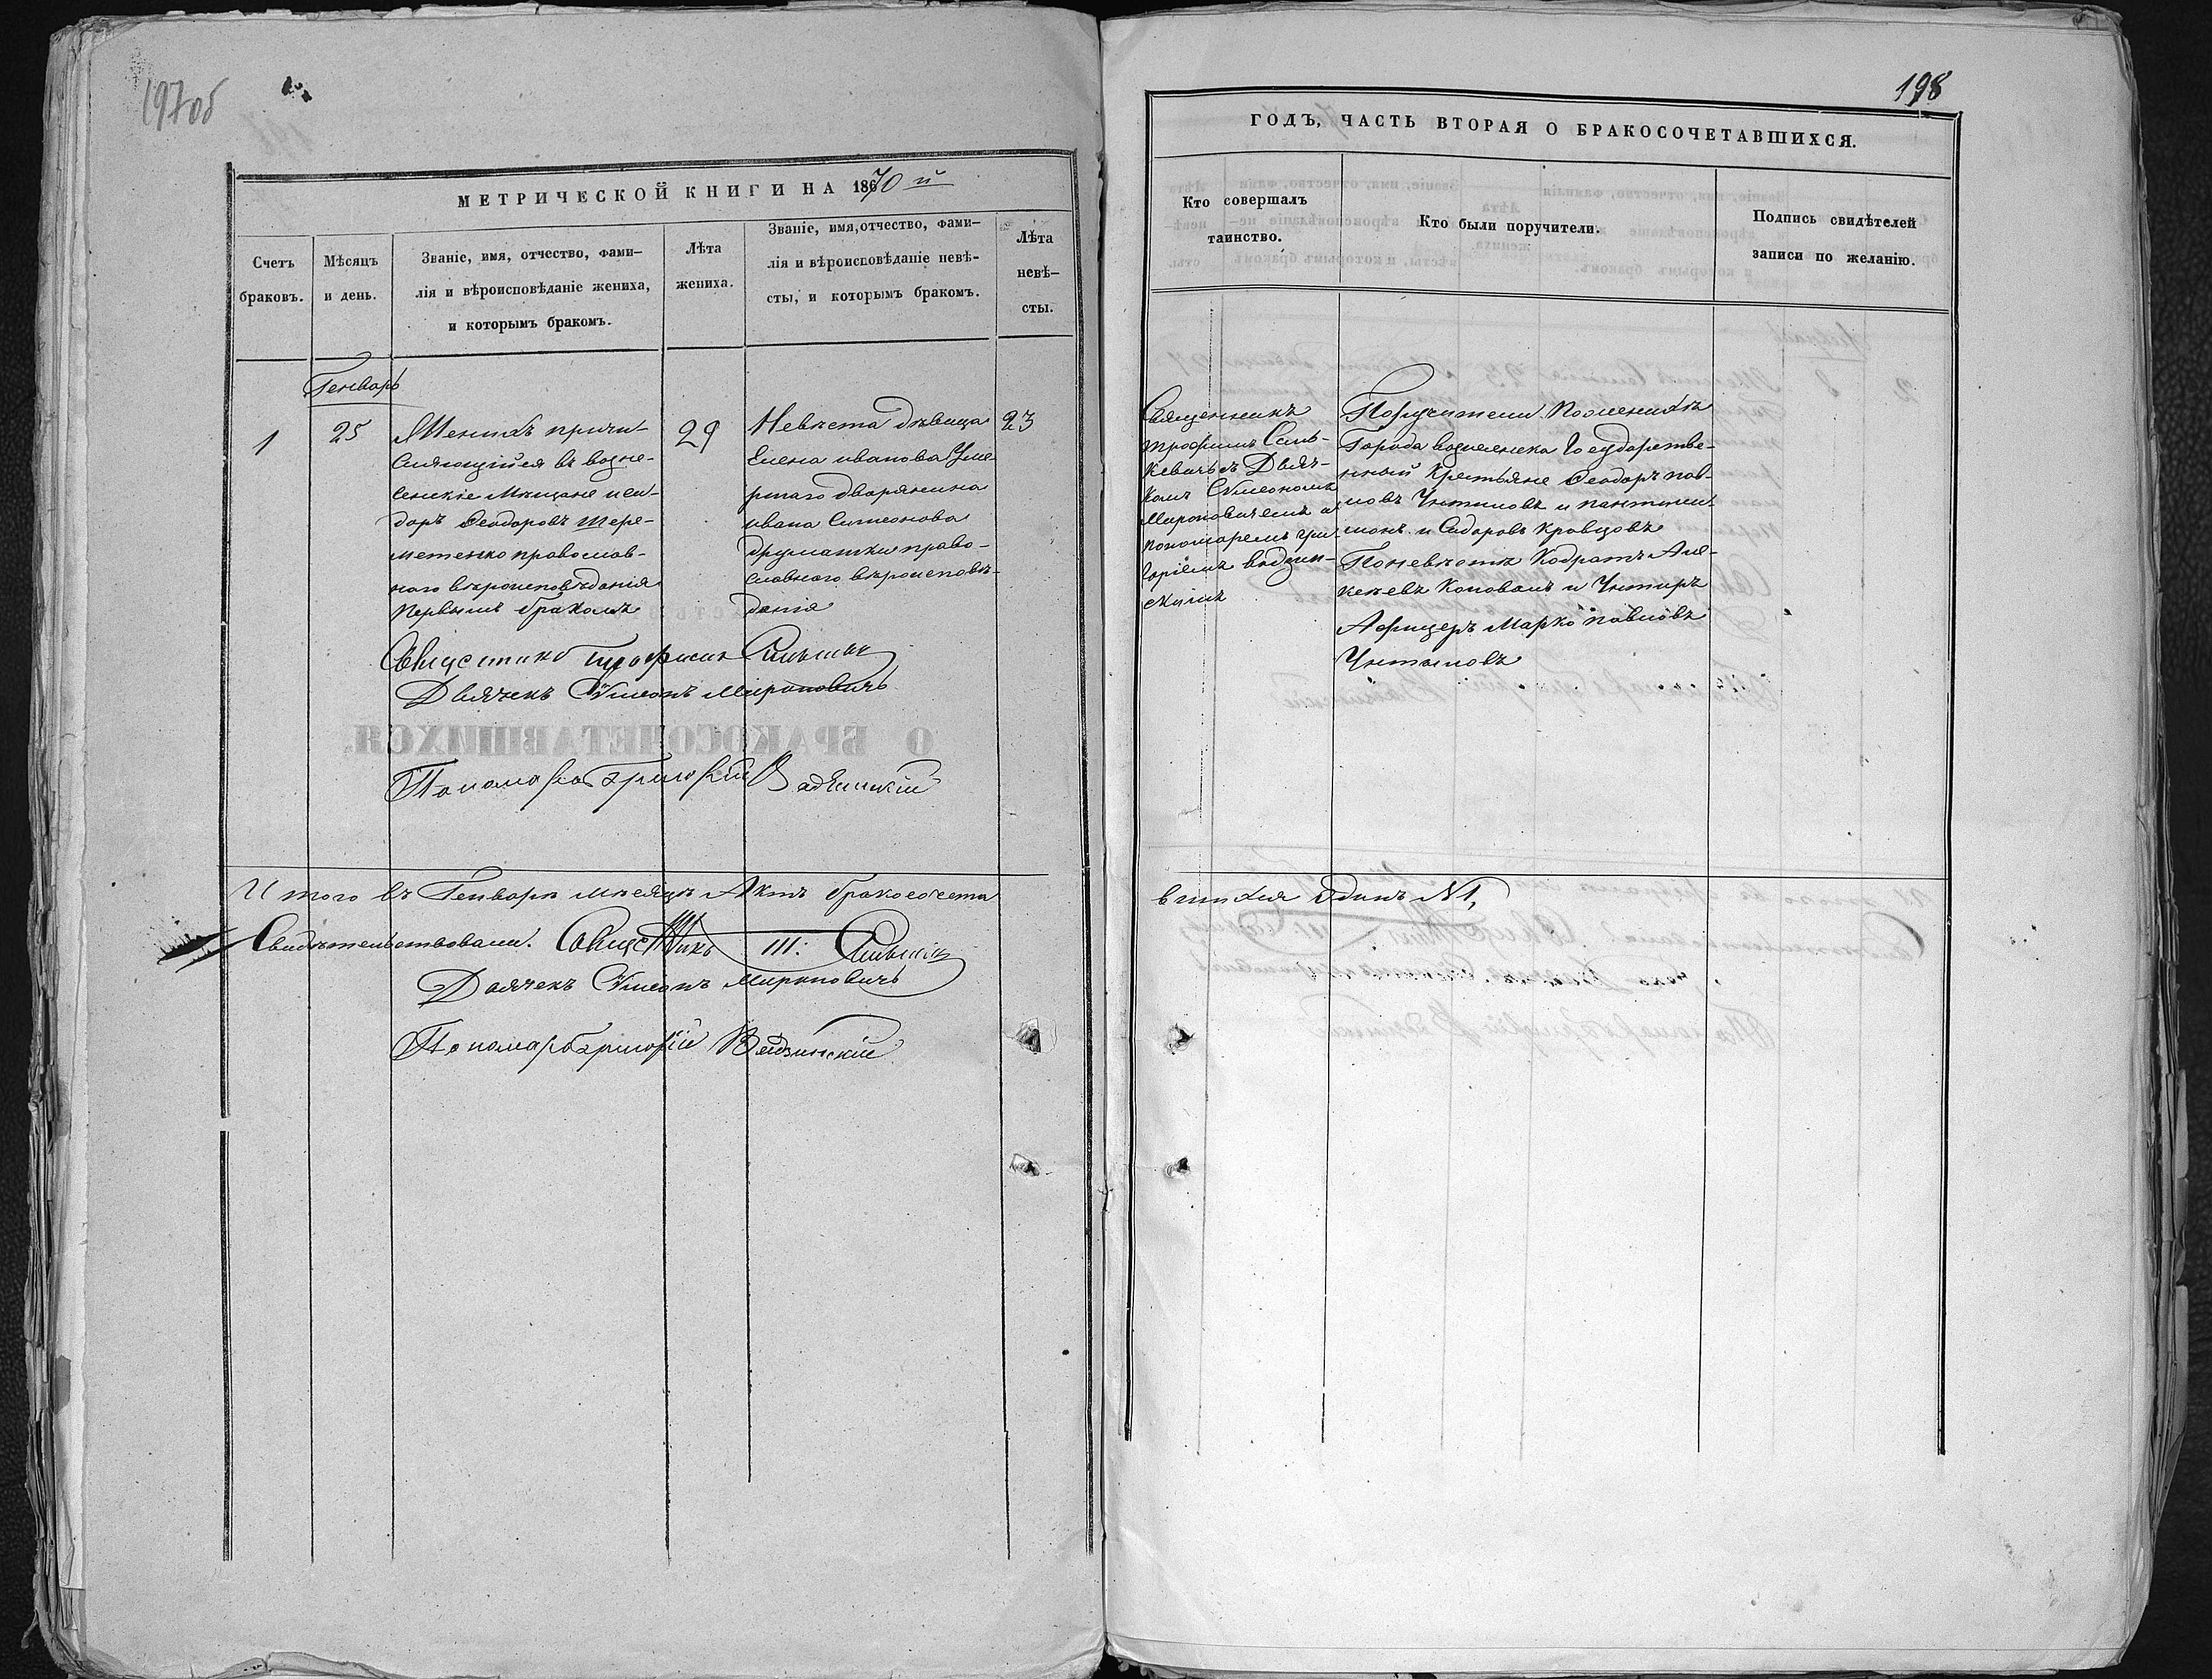 197об
МЕТРИЧЕСКОЙ КНИГИ НА 1870 й
Счетъ
браковъ.
Мѣсяцъ
и день.
Званіе, имя, отчество, фами-
лія и вѣроисповѣданіе жениха,
и которымъ бракомъ.
Лѣта
жениха.
Званіе, имя, отчество, фами-
лія и вѣроисповѣданіе невѣ-
сты, и которымъ бракомъ.
Лѣта
невѣ-
сты.
Генварь
1
25
Женихъ причи-
сляющійся въ возне-
сенскіе Мещане иси-
доръ Феодоровъ Шере-
метенко православ-
ного вѣроисповѣданія
Первымъ бракомъ
29
Невѣста дѣвица
Елена иванова Уме-
ршаго дворянина
ивана Симеонова
православнаго вѣроисповѣ-
данія
23
Священникъ Трофимъ
Дьячекъ Симеонъ Мироновичъ
Пономарь Григорій
Итого въ Генварѣ мѣсяцѣ Актъ бракосочета
Свидѣтельствовали. Священникъ
Дьячекъ Симеонъ Мироновичъ
Пономарь Григорій
198
ГОДЪ, ЧАСТЬ ВТОРАЯ О БРАКОСОЧЕТАВШИХСЯ.
Кто совершалъ
таинство.
Кто были поручители.
Подпись свидѣтелей
записи по желанію.
Священникъ
Трофимъ Сень-
кевичь съ Дьяч-
комъ Симеономъ
Мироновичемъ и
пономаремъ гри-
горіемъ водзин-
скимъ
Поручители По женихѣ
Города вознесенска Государстве-
нный Крестьяне Феодоръ пав-
ловъ и пантили-
монъ и Сидоровъ Кравцовъ
По невѣстѣ Кодратъ Але-
кеевъ Коповалъ и Унтеръ
Афицеръ Марко павловъ
вшихся Одинъ №1,